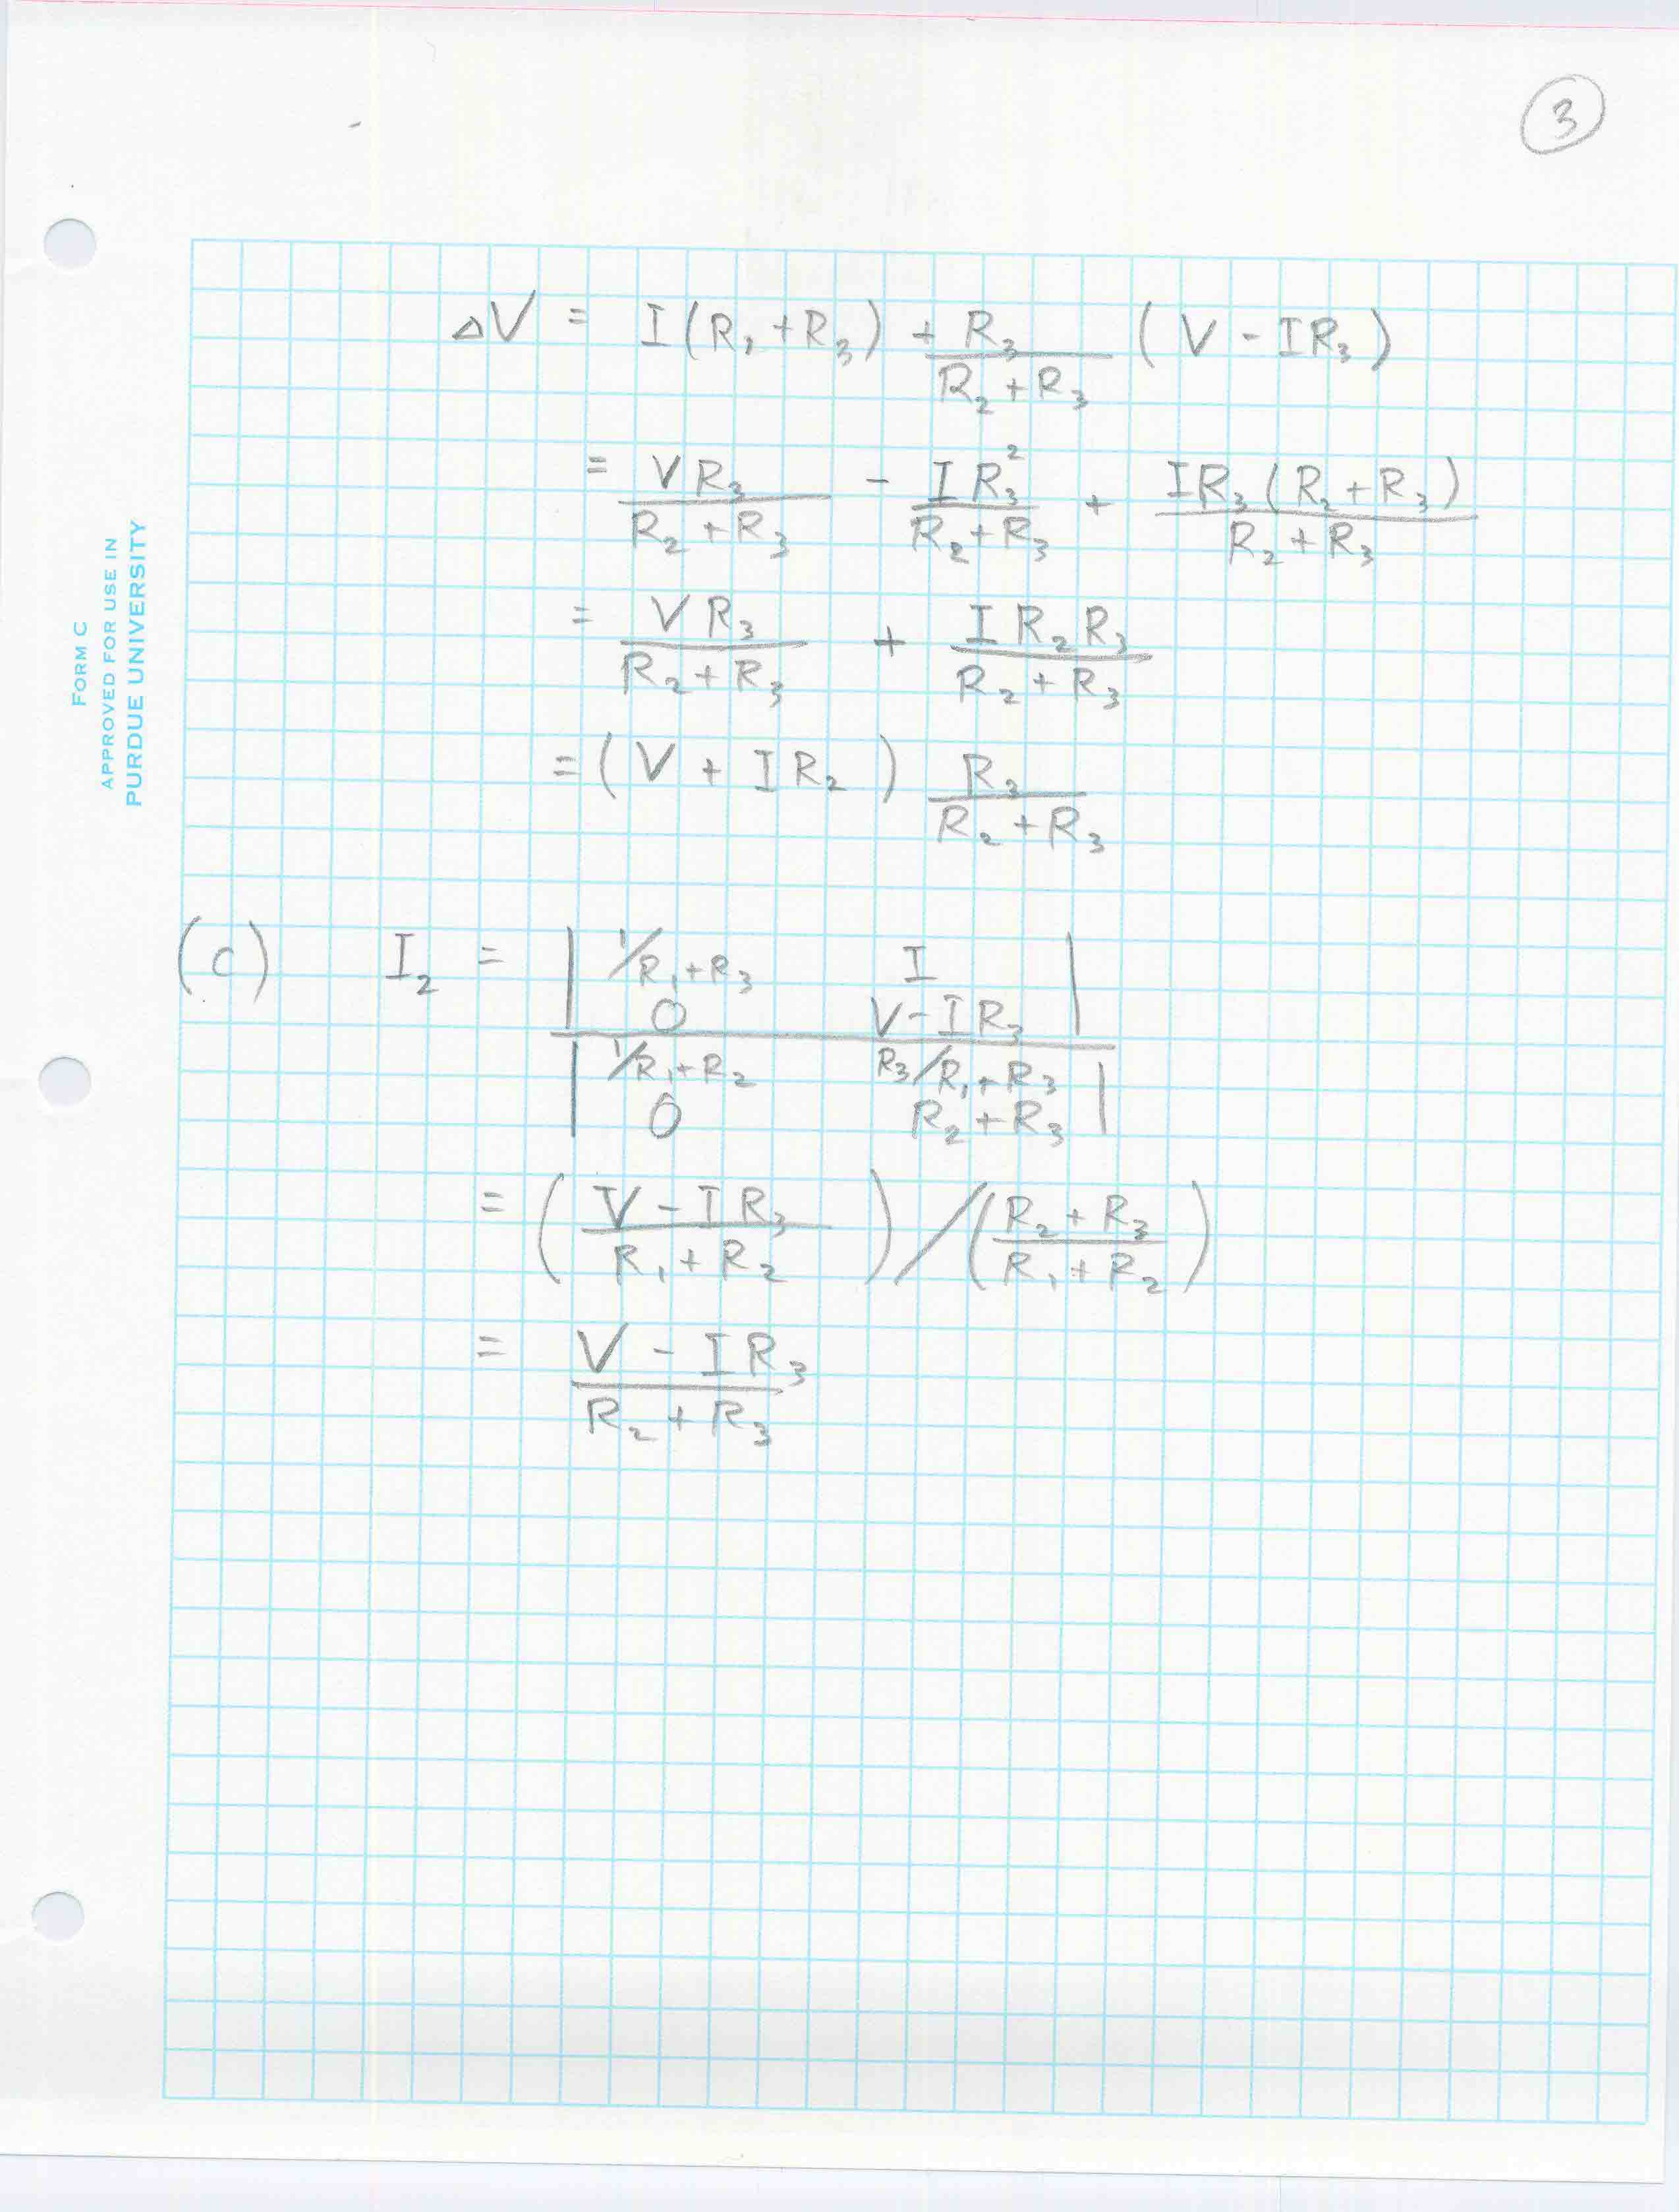 3
FORM C
APPROVED FOR USE IN
PURDUE UNIVERSITY
ΔV = I(R₁+R₃) + R₃/(R₂+R₃) (V - IR₃)
= VR₃/(R₂+R₃) - IR₃²/(R₂+R₃) + IR₃(R₂+R₃)/(R₂+R₃)
= VR₃/(R₂+R₃) + IR₂R₃/(R₂+R₃)
= (V + IR₂) R₃/(R₂+R₃)
(c) I₂ = | 1/R₁+R₃ I |
| 0 V-IR₃ |
| 1/R₁+R₂ R₃/R₁+R₃ |
| 0 R₂+R₃ |
= ((V-IR₃)/(R₁+R₂)) / ((R₂+R₃)/(R₁+R₂))
= (V - IR₃)/(R₂+R₃)